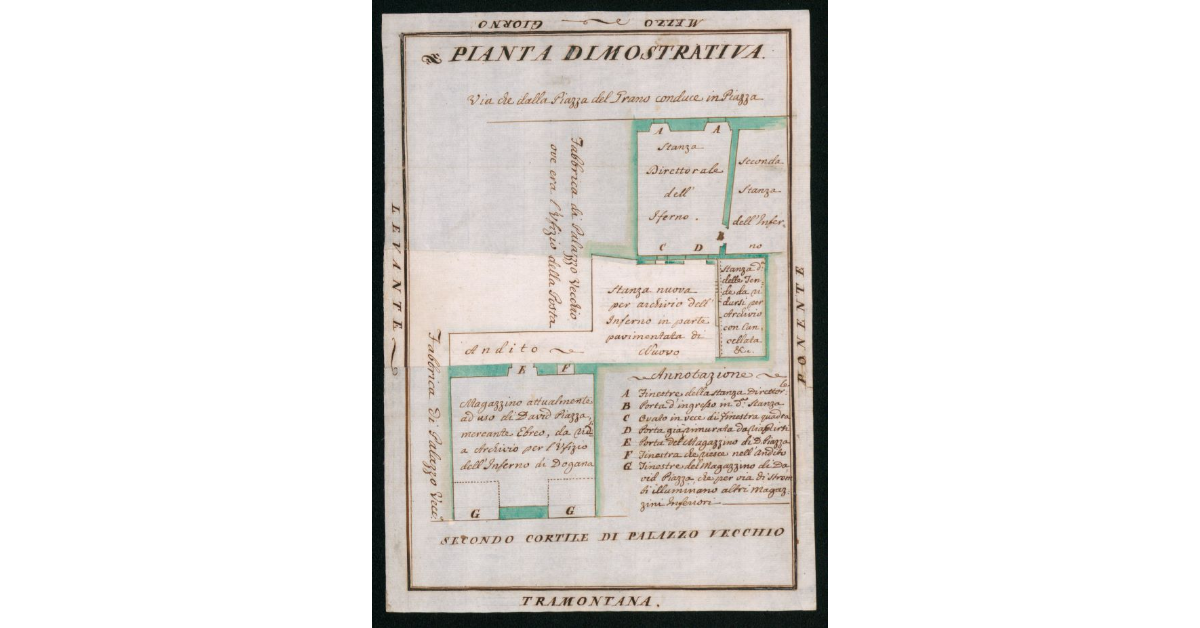 MEZZO GIORNO
PIANTA DIMOSTRATIVA.
Via che dalla Piazza del Grano conduce in Piazza
Fabbrica di Palazzo Vecchio
ove era l'Ufizio della Posta
A A
Stanza
Direttorale
dell'
Iferno.
Seconda
Stanza
dell'Infer-
no
B
C D
Stanza nuova
per archivio dell'
Inferno in parte
pavimentata di
Nuovo
Stanza d.ᵃ
della Ten-
de da ri
dursi per
Archivio
con Can,
cellata
&c.
LEVANTE
PONENTE
Andito
Fabbrica di Palazzo Vecc.
E F
Magazzino attualmente
ad uso di David Piazza
mercante Ebreo, da rid.
a Archivio per l'Ufizio
dell'Inferno di Dogana
G G
Annotazione
A Finestre della stanza Direttor.le
B Porta d'ingresso in d.ᵃ Stanza
C Ovato in vece di finestra quadra
D Porta già murata da riaprirsi
E Porta del Magazzino di D. Piazza
F Finestra che riesce nell'Andito
G Finestre del Magazzino di Da
vid Piazza che per via di Strom
di illuminano altri Magaz.
zini Inferiori
SECONDO CORTILE DI PALAZZO VECCHIO
TRAMONTANA.